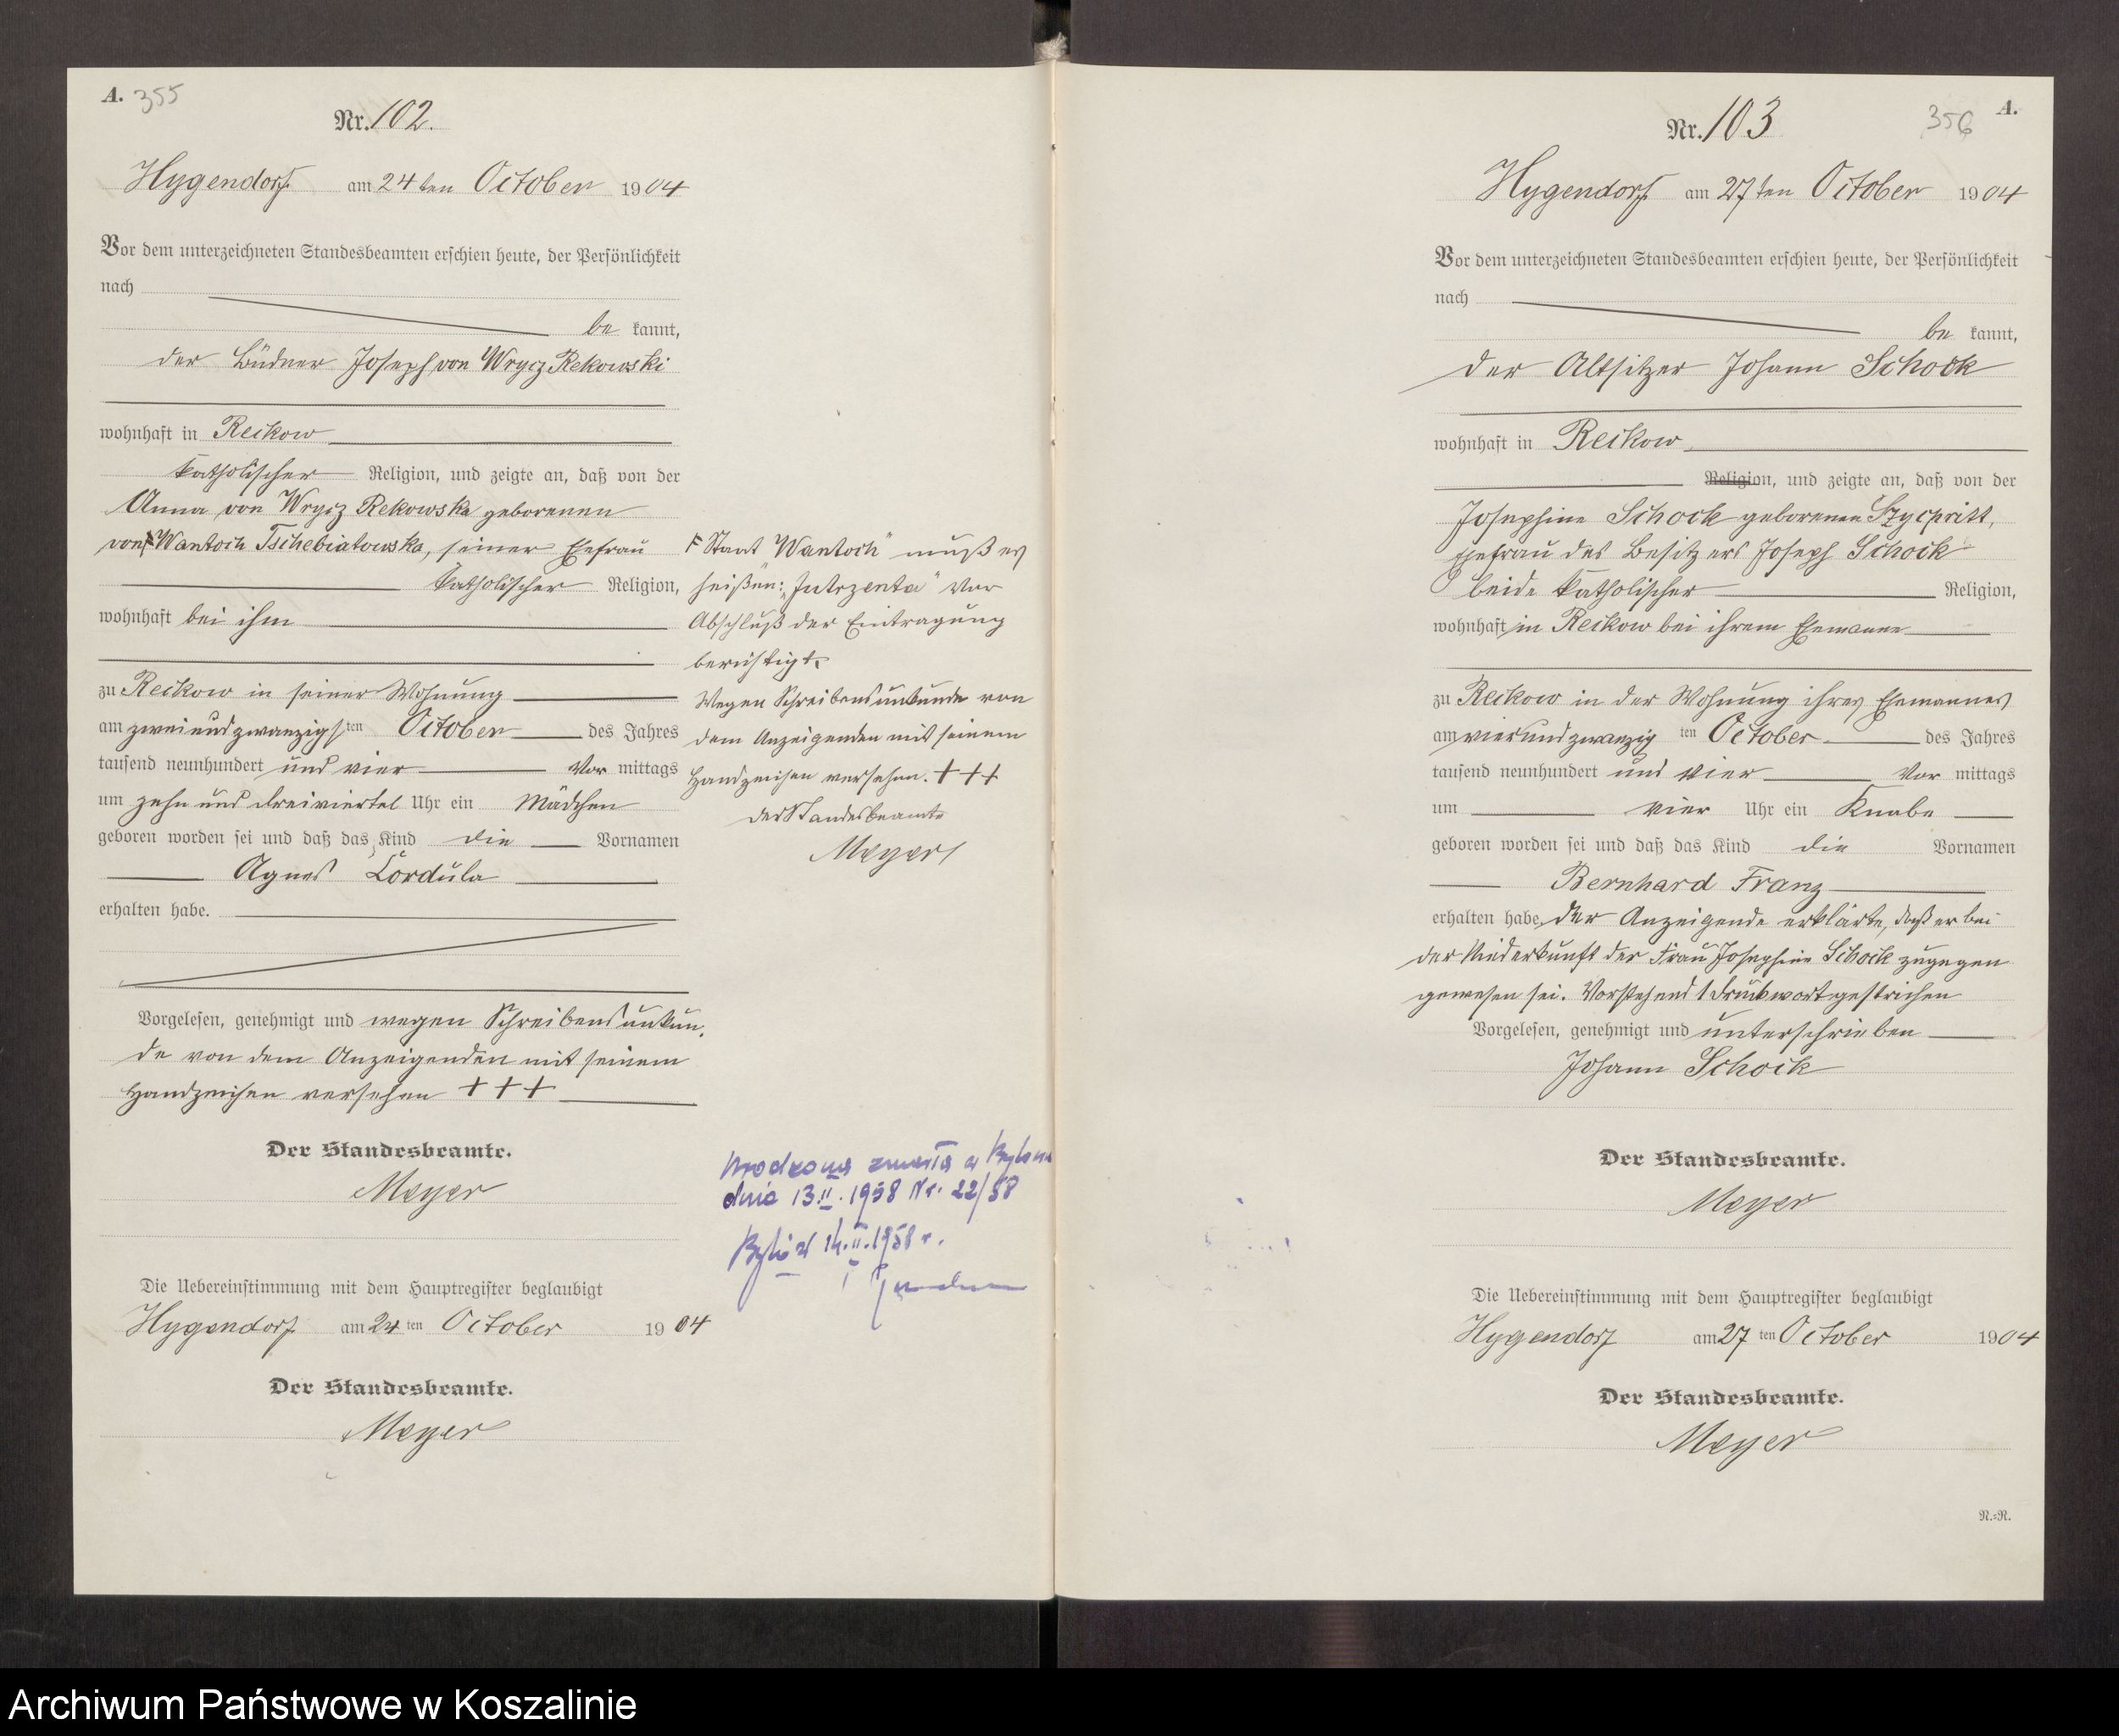 A. 355
Nr. 102.
Hygendorf am 24ten October 1904
Vor dem unterzeichneten Standesbeamten erschien heute, der Persönlichkeit
nach
be kannt,
der Büdner Joseph von Wrycz Rekowski
wohnhaft in Reckow
katholischer Religion, und zeigte an, daß von der
Anna von Wrycz Rekowska geborenen
von Wantoch Tschebiatowska, seiner Ehefrau
katholischer Religion,
wohnhaft bei ihm
zu Reckow in seiner Wohnung
am zweiundzwanzigsten October des Jahres
tausend neunhundert und vier Vor mittags
um zehn und dreiviertel Uhr ein Mädchen
geboren worden sei und daß das Kind die Vornamen
Agnes Cordula
erhalten habe.
Vorgelesen, genehmigt und wegen Schreibensunkun-
de von dem Anzeigenden mit seinem
Handzeichen versehen +++
Der Standesbeamte.
Meyer
Die Uebereinstimmung mit dem Hauptregister beglaubigt
Hygendorf am 24 ten October 1904
Der Standesbeamte.
Meyer
Statt "Wantoch" muß es
heißen: "Jutrzenka" Vor
Abschluß der Eintragung
berichtigt.
Wegen Schreibensunkunde von
dem Anzeigenden mit seinem
Handzeichen versehen. +++
Der Standesbeamte
Meyer
Urodzona zmarła w
dnia 13.II.1958 Nr. 22/58
14.II.1958 r.
356 A.
Nr. 103
Hygendorf am 27ten October 1904
Vor dem unterzeichneten Standesbeamten erschien heute, der Persönlichkeit
nach
be kannt,
der Altsitzer Johann Schock
wohnhaft in Reckow
Religion, und zeigte an, daß von der
Josephine Schock geborenen
Ehefrau des Besitzers Joseph Schock
beide katholischer Religion,
wohnhaft in Reckow bei ihrem Ehemanne
zu Reckow in der Wohnung ihres Ehemannes
am vierundzwanzig ten October des Jahres
tausend neunhundert und vier Vor mittags
um vier Uhr ein Knabe
geboren worden sei und daß das Kind die Vornamen
Bernhard Franz
erhalten habe, der Anzeigende erklärte, daß er bei
der Niederkunft der Frau Josephine Schock zugegen
gewesen sei. Vorstehend 1 Druckwort gestrichen
Vorgelesen, genehmigt und unterschrieben
Johann Schock
Der Standesbeamte.
Meyer
Die Uebereinstimmung mit dem Hauptregister beglaubigt
Hygendorf am 27 ten October 1904
Der Standesbeamte.
Meyer
N.-R.
Archiwum Państwowe w Koszalinie